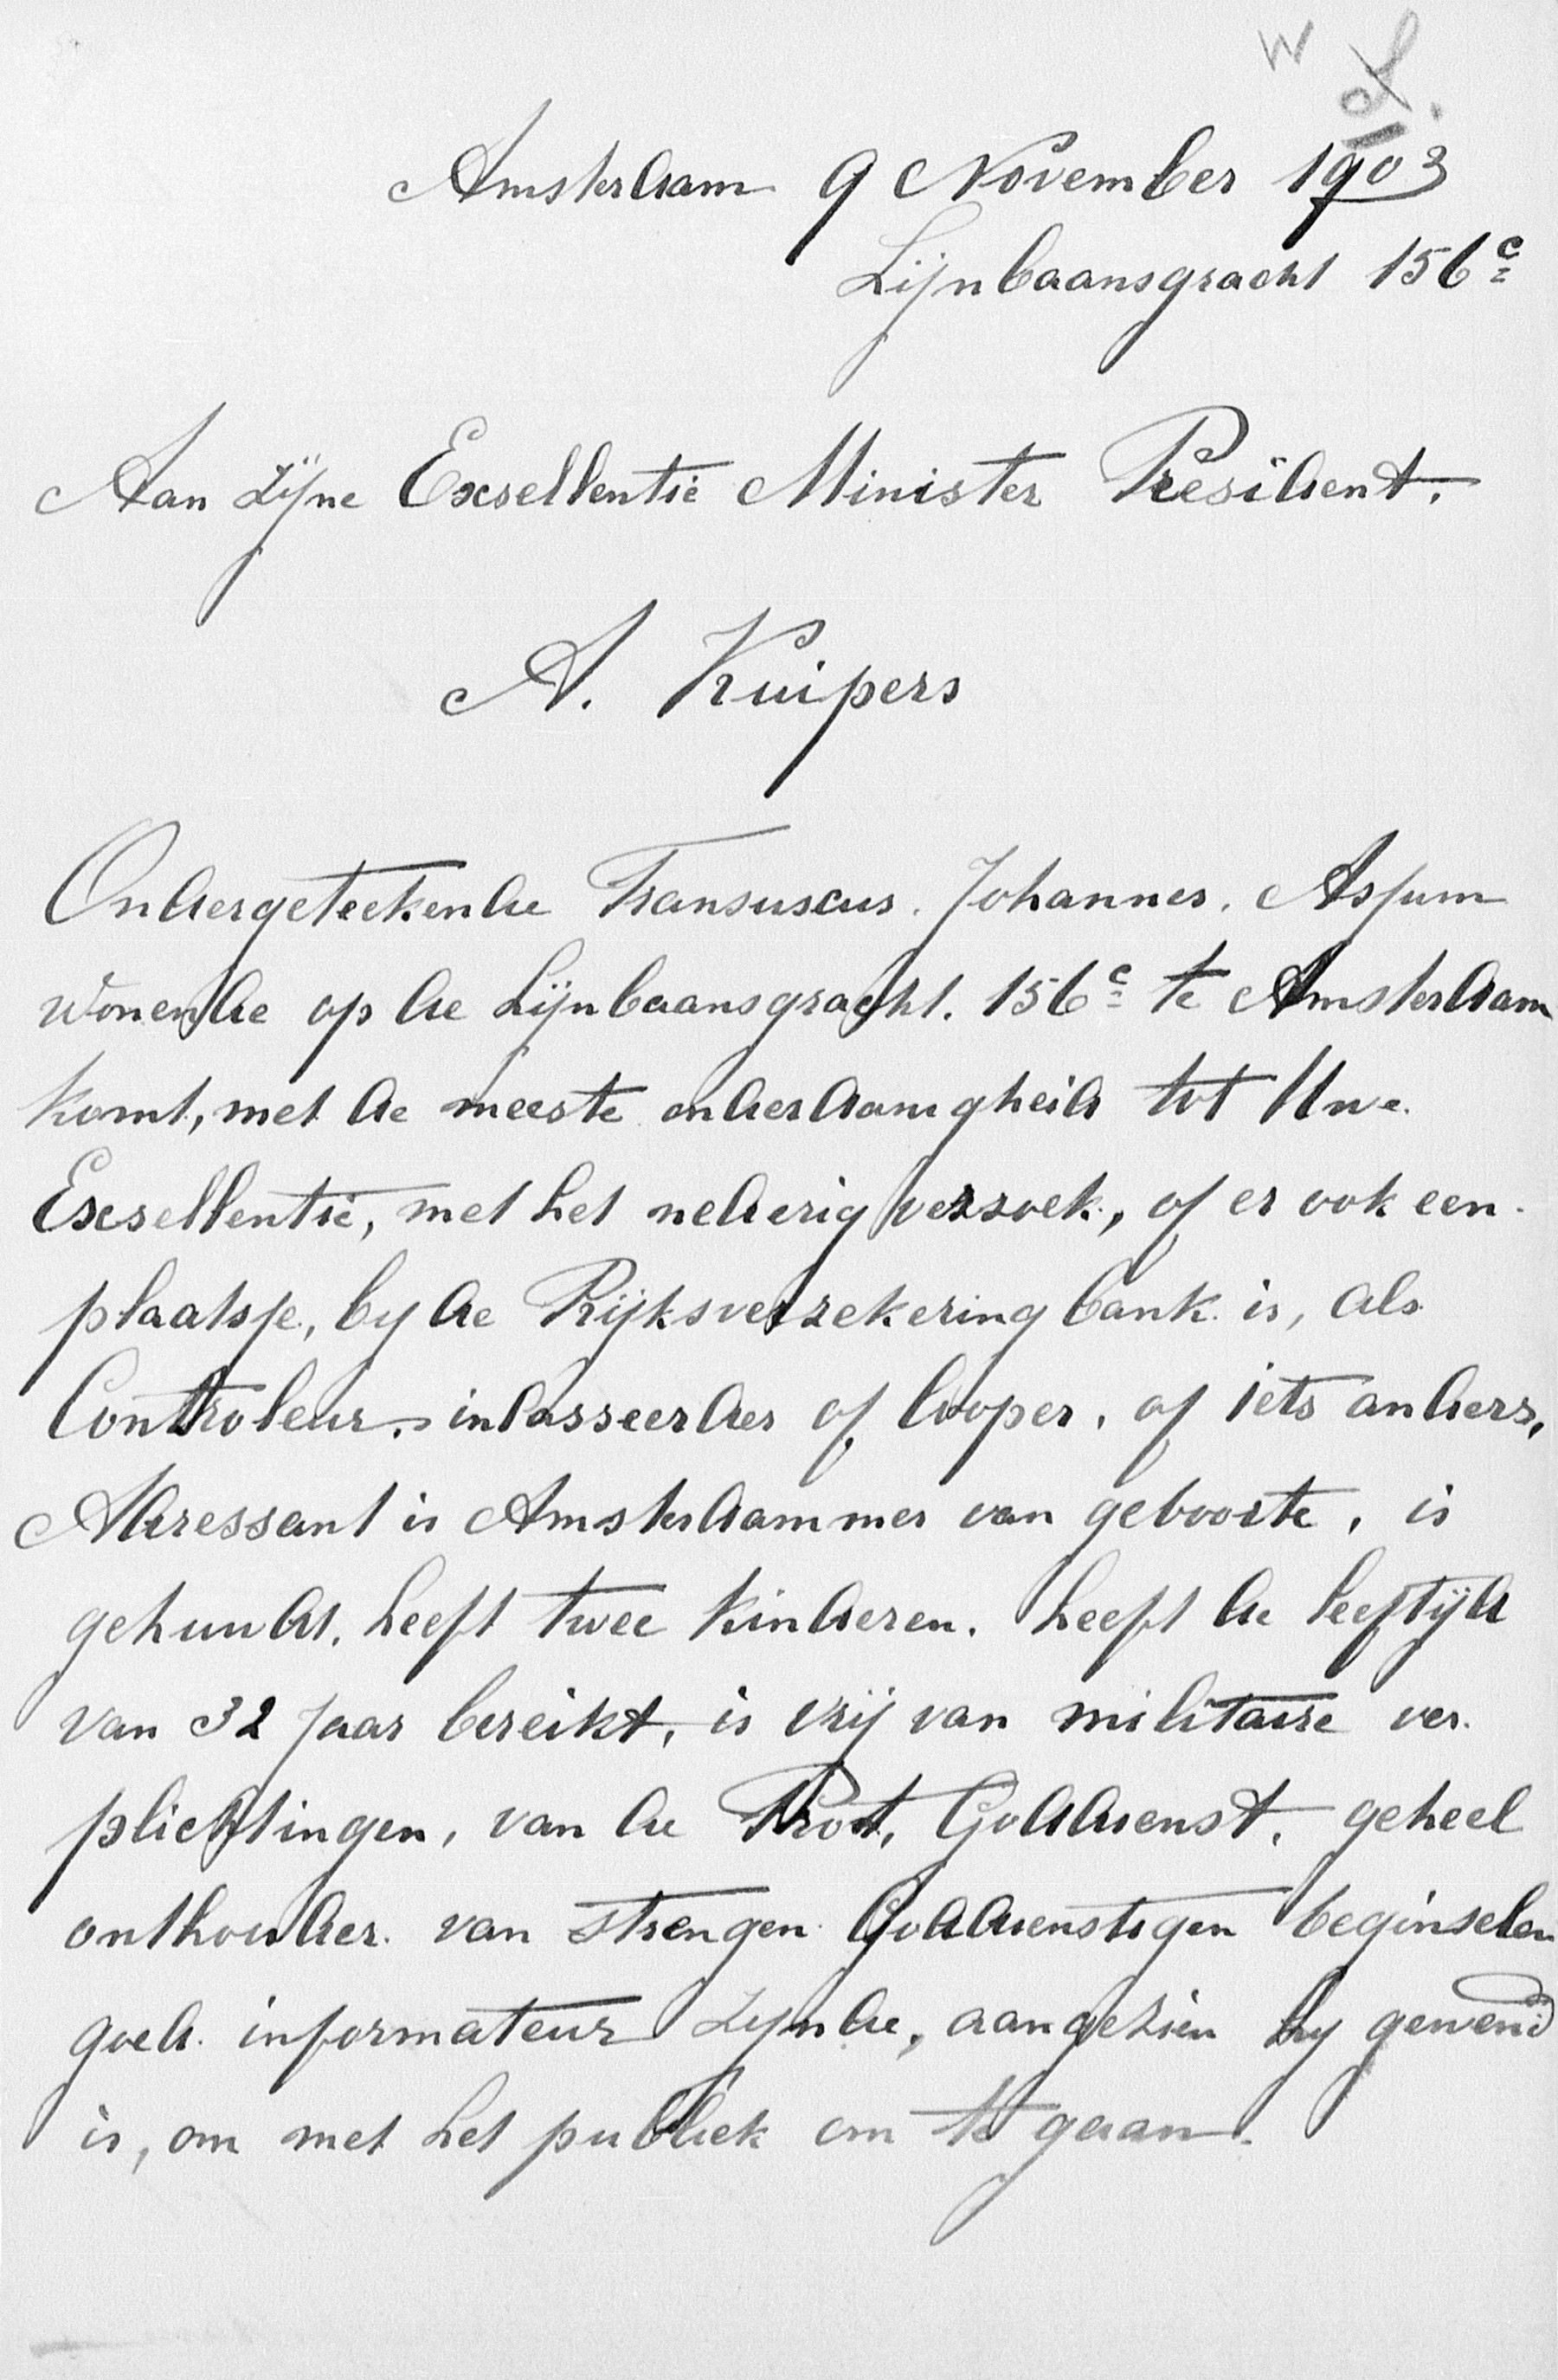 W
Amsterdam 9 November 1903
Lijnbaansgracht 156c
Aan Zijne Exsellentie Minister President.
A. Kuipers
Ondergeteekende Fransuscus. Johannes. Assum
wonende op de Lijnbaansgracht. 156c te Amsterdam
komt, met de meeste onderdanigheid tot Uwe.
Exsellentie, met het nederig verzoek, of er ook een.
plaatsje, by de Rijksverzekering bank. is, als
Controleur. inkasseerder of looper. of iets anders,
Adressant is Amsterdammer van geboorte, is
gehuwdt, heeft twee kinderen. heeft de leeftijd
van 32 jaar bereikt, is vrij van militaire ver.
plichtingen, van de Prot, Goddienst, geheel
onthouder. van strengen Goddienstigen beginselen
goed. informateur zynde, aangezien hy gewend
is, om met het publiek om te gaan.